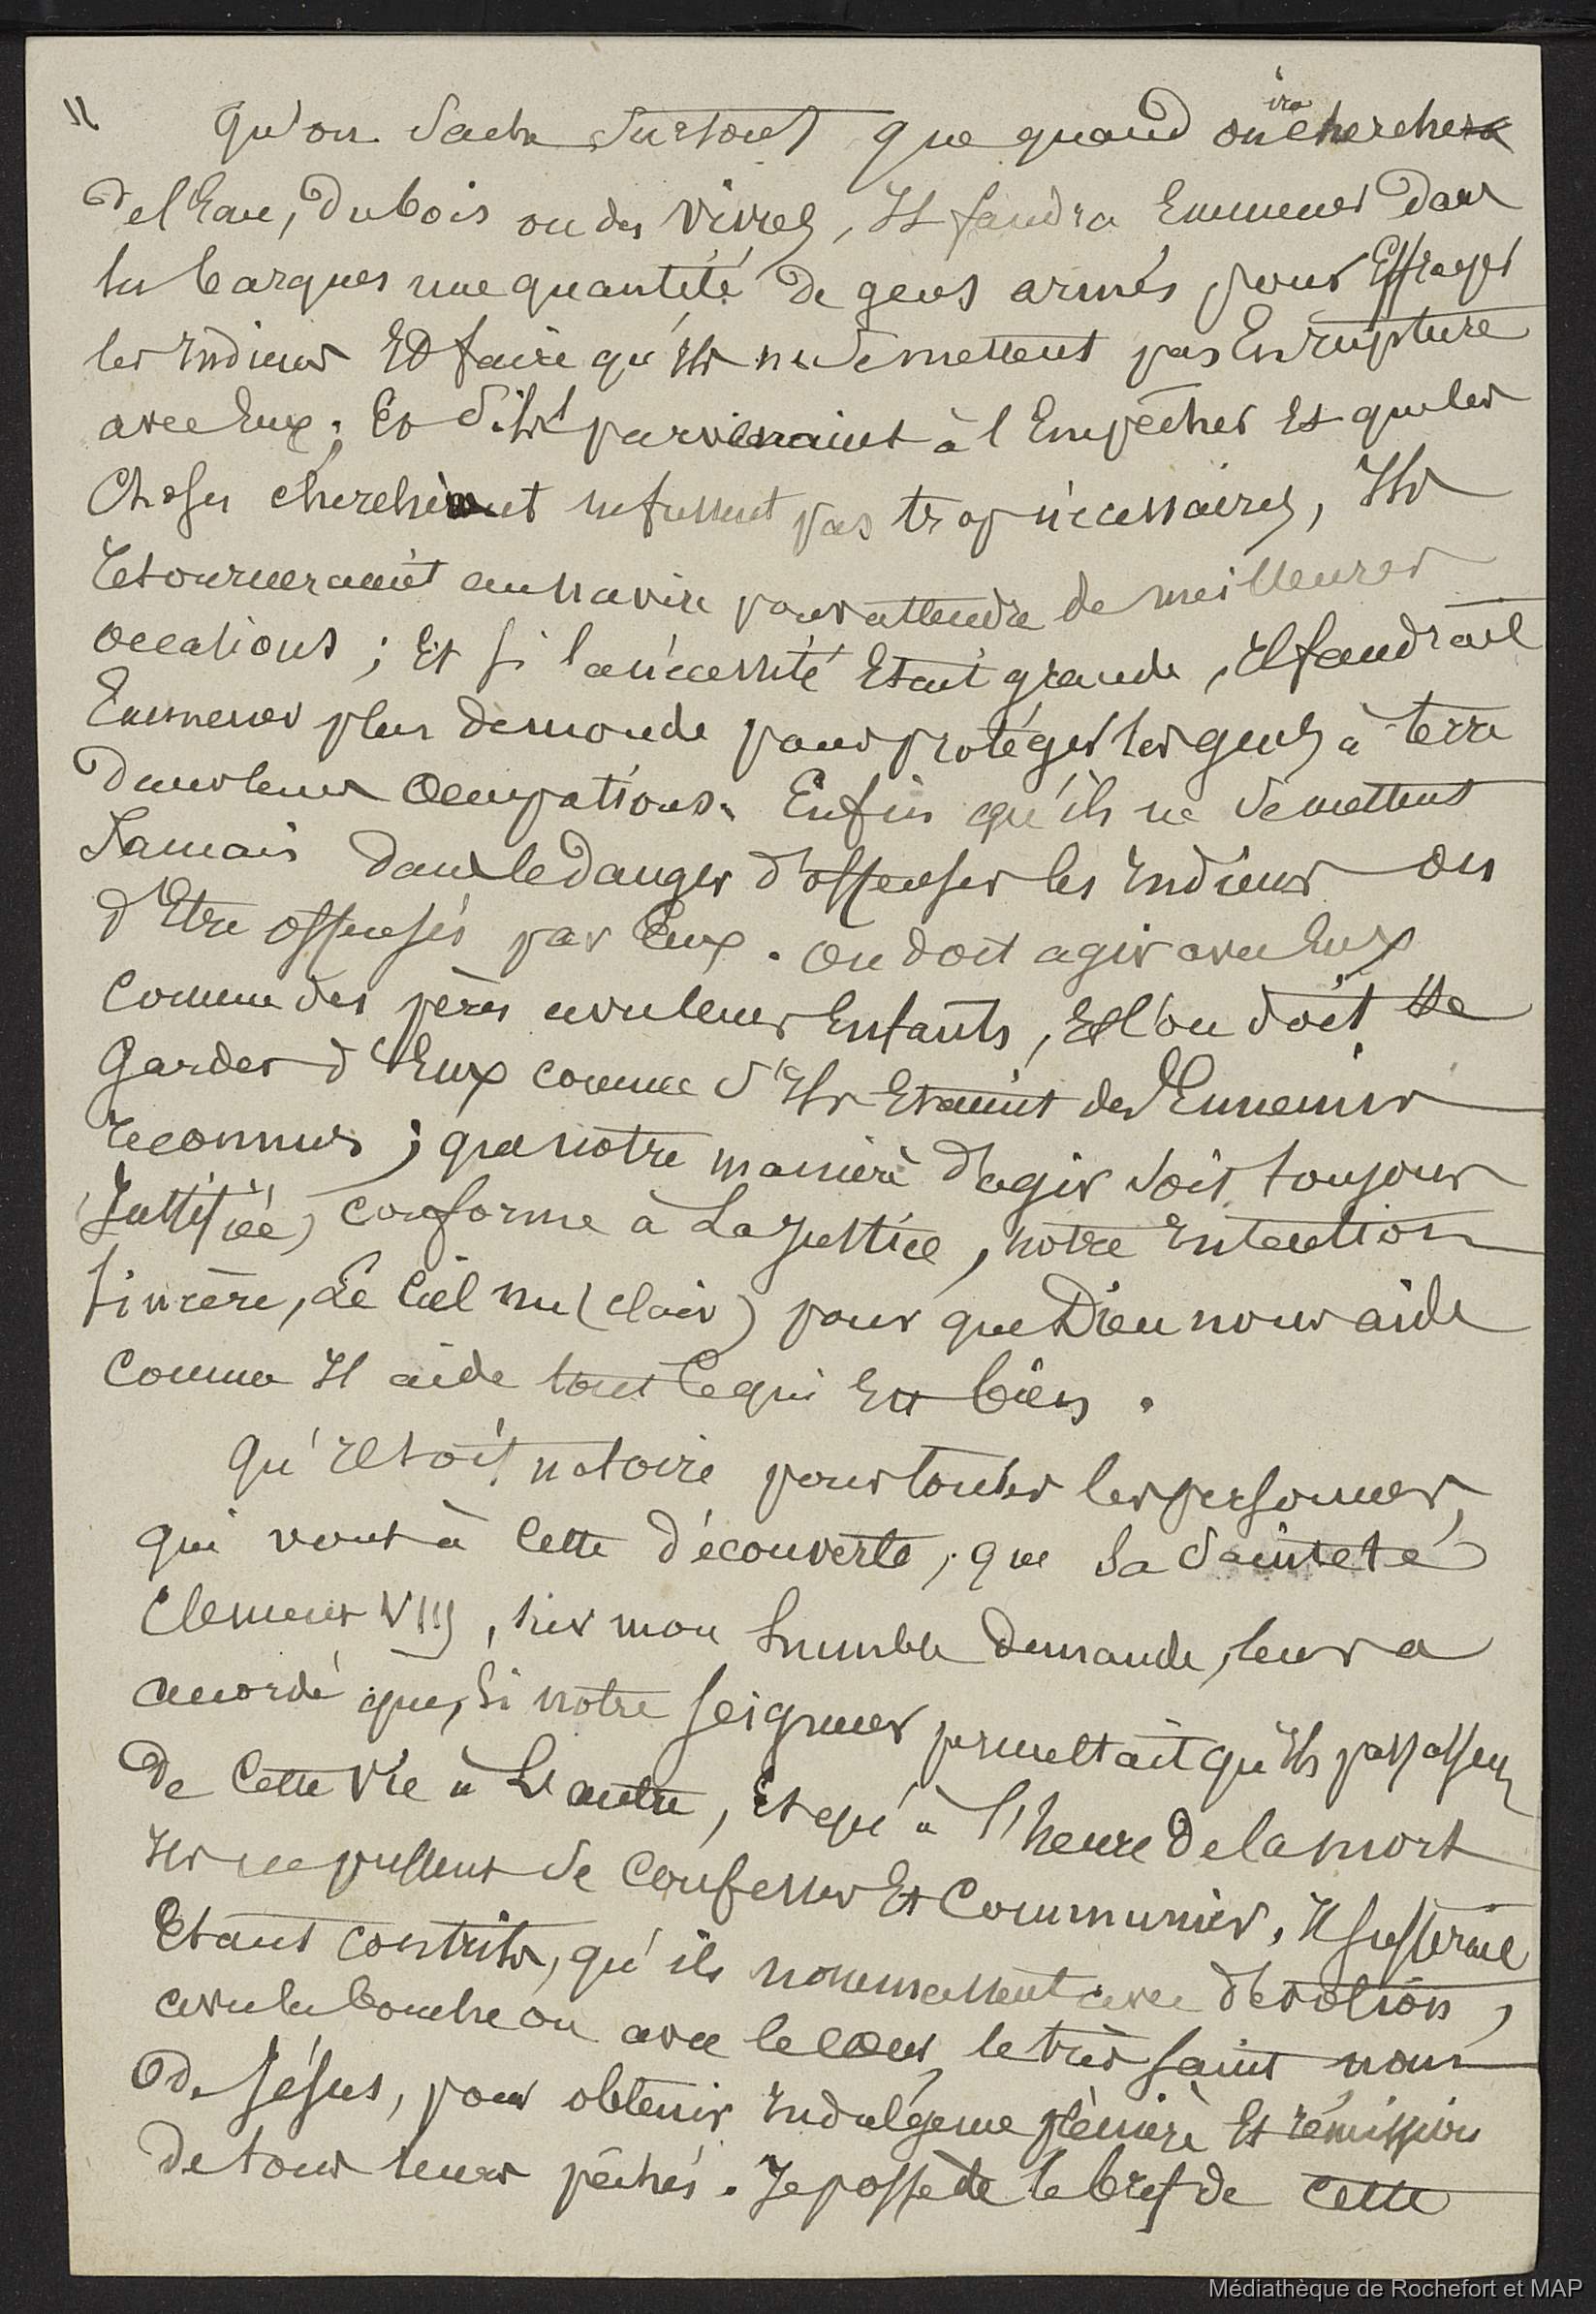 " Qu'on sache surtout que quand on ira chercher
de l'Eau, du bois ou des vivres, Il faudra Emmener dans
les barques une quantité de gens armés pour Effrayer
les Indiens Et faire qu'Ils ne se mettent pas En rupture
avec Eux ; Et s'ils parvenaient à l'Empêcher Et que les
Choses cherchées ne fussent pas trop nécessaires, Ils
retourneraient au navire pour attendre de meilleures
occasions ; Et si la nécessité Etait grande, Il faudrait
Emmener plus de monde pour protéger les gens à terre
dans leurs occupations. Enfin qu'ils ne se mettent
Jamais dans le danger d'offenser les Indiens ou
d'Etre offensés par Eux. On doit agir avec Eux
comme des pères avec leurs Enfants, Et l'on doit se
garder d'Eux comme s'Ils Etaient des Ennemis
reconnus ; que notre manière d'agir soit toujours
Justifiée, conforme à La Justice, notre Intention
sincère, Le Ciel nu (clair) pour que Dieu nous aide
comme Il aide tout ce qui Est bien.
Qu'Il soit notoire pour toutes les personnes,
qui vont à cette découverte, que Sa Sainteté
Clement VIII, sur mon humble demande, leur a
accordé que, si notre seigneur permettait qu'Ils passassent
de cette vie à L'autre, Et qu'à l'heure de la mort
Ils ne pussent se Confesser Et Communier, Il suffirait
Etant contrits, qu'ils nommassent avec dévotion,
avec la bouche ou avec le cœur, le très saint nom
de Jésus, pour obtenir Indulgence plénière Et rémission
de tous leurs péchés. Je possède le bref de cette
Médiathèque de Rochefort et MAP